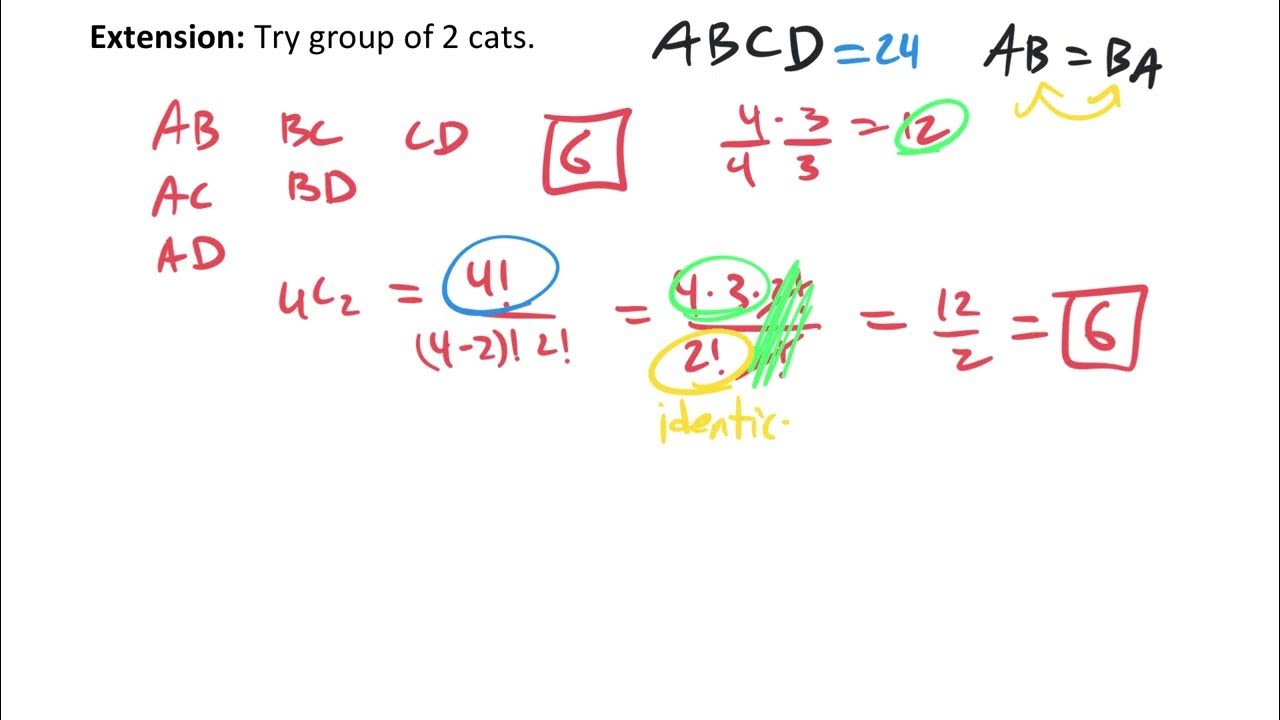 Extension: Try group of 2 cats.
ABCD = 24
AB = BA
AB BC CD 6
AC BD
AD
4 · 3 = 12
4 3
4C2 = 4! / (4-2)! 2! = 4 · 3 · / 2! = 12/2 = 6
identic.